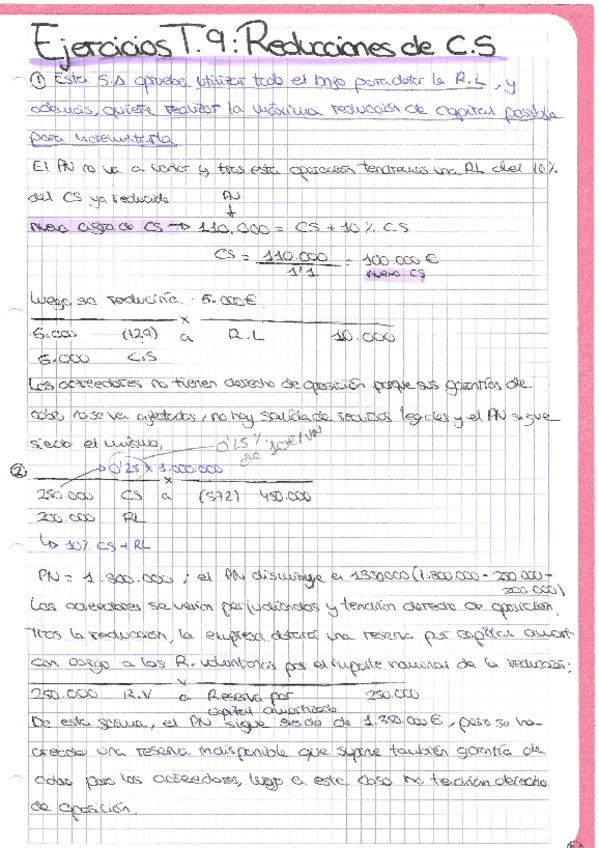 Ejercicios T.9: Reducciones de C.S
① Esta S.A aprueba utilizar todo el bº para dotar la R.L, y
además, quiere realizar la máxima reducción de capital posible
para incrementarla.
El PN no va a variar y tras esta operación tendremos una RL del 10%
del CS ya reducido
PN
nueva cifra de CS → 110.000 = CS + 10% CS
CS = 110.000 / 1'1 = 100.000 €
nuevo CS
Luego se reduciría 5.000€.
x
5.000 (129) a R.L 10.000
5.000 C.S
Los acreedores no tienen derecho de oposición porque sus garantías de
cobro no se ven afectadas, no hay salida de recursos y el PN sigue
siendo el mismo.
0'25% de 10€/VN
② 0'25 x 1.000.000
x
250.000 CS a (572) 450.000
200.000 RL
↳ 10% CS + RL
PN = 1.800.000; el PN disminuye a 1350000 (1.800.000 - 250.000 -
200.000)
Los acreedores se verían perjudicados y tendrían derecho de oposición.
Tras la reducción, la empresa dotará una reserva por capital amort.
con cargo a las R. voluntarias por el importe nominal de la reducción:
250.000 R.V a Reserva por 250.000
capital amortizado
De esta forma, el PN sigue siendo de 1.350.000€, pero se ha
creado una reserva indisponible que supone también garantía de
cobro para los acreedores, luego en este caso no tendrían derecho
de oposición.